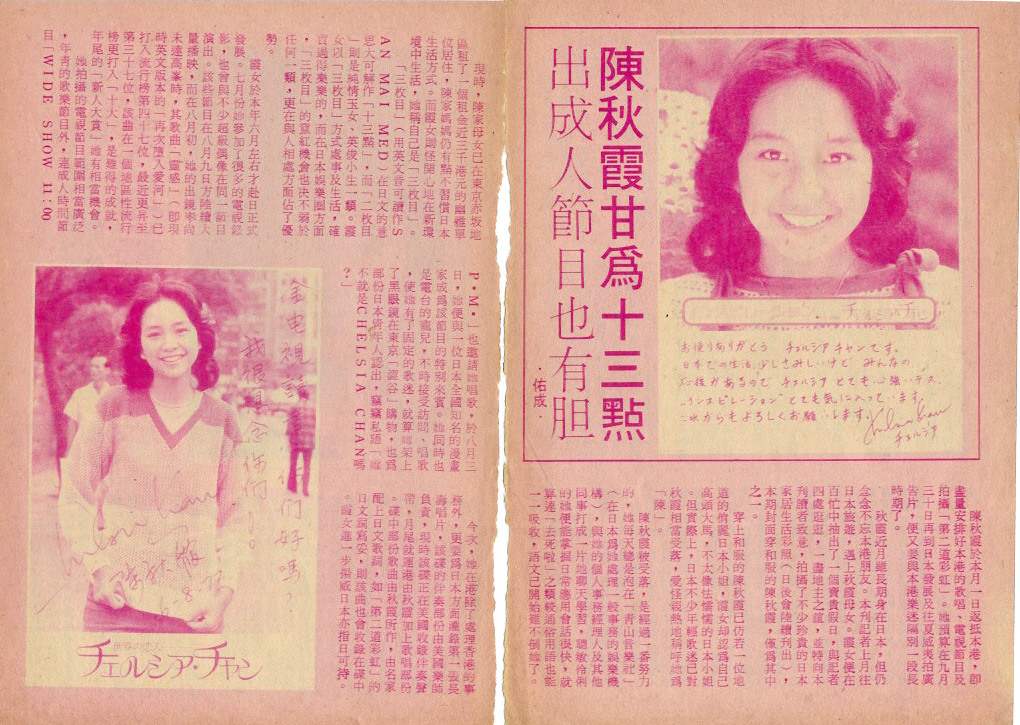 陳秋霞甘為十三點
出成人節目也有胆
·佑成·
チェルシア チャン
お便りありがとう チェルシア チャンです。
日本での生活、少しさみしいけど みんなの
応援があるので チェルシア とても心強いデス
"インスピレーション" とても気に入っています。
これからもよろしくお願いします!
チェルシア
陳秋霞於本月一日返抵本港,即
盡量安排好本港的歌唱、電視節目及
拍攝「第二道彩虹」。她預算在九月
三十日再到日本發展及往夏威夷拍廣
告片,便又要與本港樂迷隔別一段長
時期了。
秋霞近月雖長期身在日本,但仍
念念不忘本港朋友。本刊記者上月往
日本旅遊,遇上秋霞母女。霞女便在
百忙中抽出了一個寶貴假日,與記者
四處逛逛,一盡地主之誼,並特向本
刊讀者致意,拍攝了不少珍貴的日本
家居生活彩照(日後會陸續刊出),
本期封面穿和服的陳秋霞,僅為其中
之一。
穿上和服的陳秋霞已仿若一位地
道的俏麗日本小姐,霞女却認為自己
高頭大馬,不太像怯懦懦的日本小姐
。但實際上,日本不少年輕歌迷已對
秋霞相當受落,愛怪親熱地稱呼她為
「陳」。
陳秋霞被受落,是經過一番努力
的,她每天總是泡在「青山音樂社」
(在日本為她處理一般事務的娛樂機
構),與她的個人事務經理人及其他
同事打成一片地聊天學習,聰敏伶俐
的她便能掌握日常應用會話很快,就
算連「去死啦」之類較通俗用語也能
一一吸收,語文已開始難不倒她了。
現時,陳家母女已在東京赤坂地
區租了一個租金近三千港元的幽雅單
位居住,陳家媽媽仍有點不習慣日本
生活方式。而霞女則怪開心地在新環
境中生活,她稱自己是「三枚目」。
「三枚目」(用英文音可讀作S
AN MAI MED)在日文的意
思大可解作「十三點」,而「二枚目
」則是純情玉女、英俊小生一類。霞
女以「三枚目」方式處事及生活,確
頁過得樂樂的,而在日本娛樂圈方面
,「三枚目」的竄紅機會也決不弱於
任何一類,更在與人相處方面佔了優
勢。
霞女於本年六月左右才赴日正式
發展。七月份她參加了很多的電視錄
影,也曾與不少超級偶像在同一節目
演出。該些節目在八月尢日方陸續大
量播映,而在八月初,她的出鏡率尚
未達高峯時,其歌曲「靈感」(即現
時英文版本的「再次墮入愛河」)已
打入流行榜第四十七位,最近更昇至
第三十七位,該曲在一個地區性流行
榜更打入「十大」,是難得的成就,
年尾的「新人大賞」她有相當機會。
她拍攝的電視節目範圍相當廣泛
,年青的歌樂節目外,連成人時間節
目「WIDE SHOW 11:00
P·M·」也邀請她唱歌,於八月三
日,她便與一位日本全國知名的漫畫
家成為該節目的特別來賓。她同時也
是電台的寵兒,不時接受訪問、唱歌
,使她有了固定的歌迷,就算她架上
了黑眼鏡在東京「澀谷」購物,也為
部份日本青年人認出,竊竊私語「她
不就是CHELSIA CHAN嗎
?」
今次,她在港除了處理香港的事
務外,更要為日本方面灌錄第一張長
壽唱片,該碟的伴奏部份由美國樂師
負責,現時該碟正在美國收錄伴奏聲
帶,月尾就運港由秋霞加上歌唱部份
。碟中部份歌曲由秋霞所作,由名家
配上日文歌詞,如「第二道彩虹」的
日文詞寫妥,則該曲也會收錄在碟中
。霞女進一步揚威日本亦指日可待。
金电視讀者們好嗎?
我很想念你們。
陳秋霞
世界の恋人
チェルシア・チャン